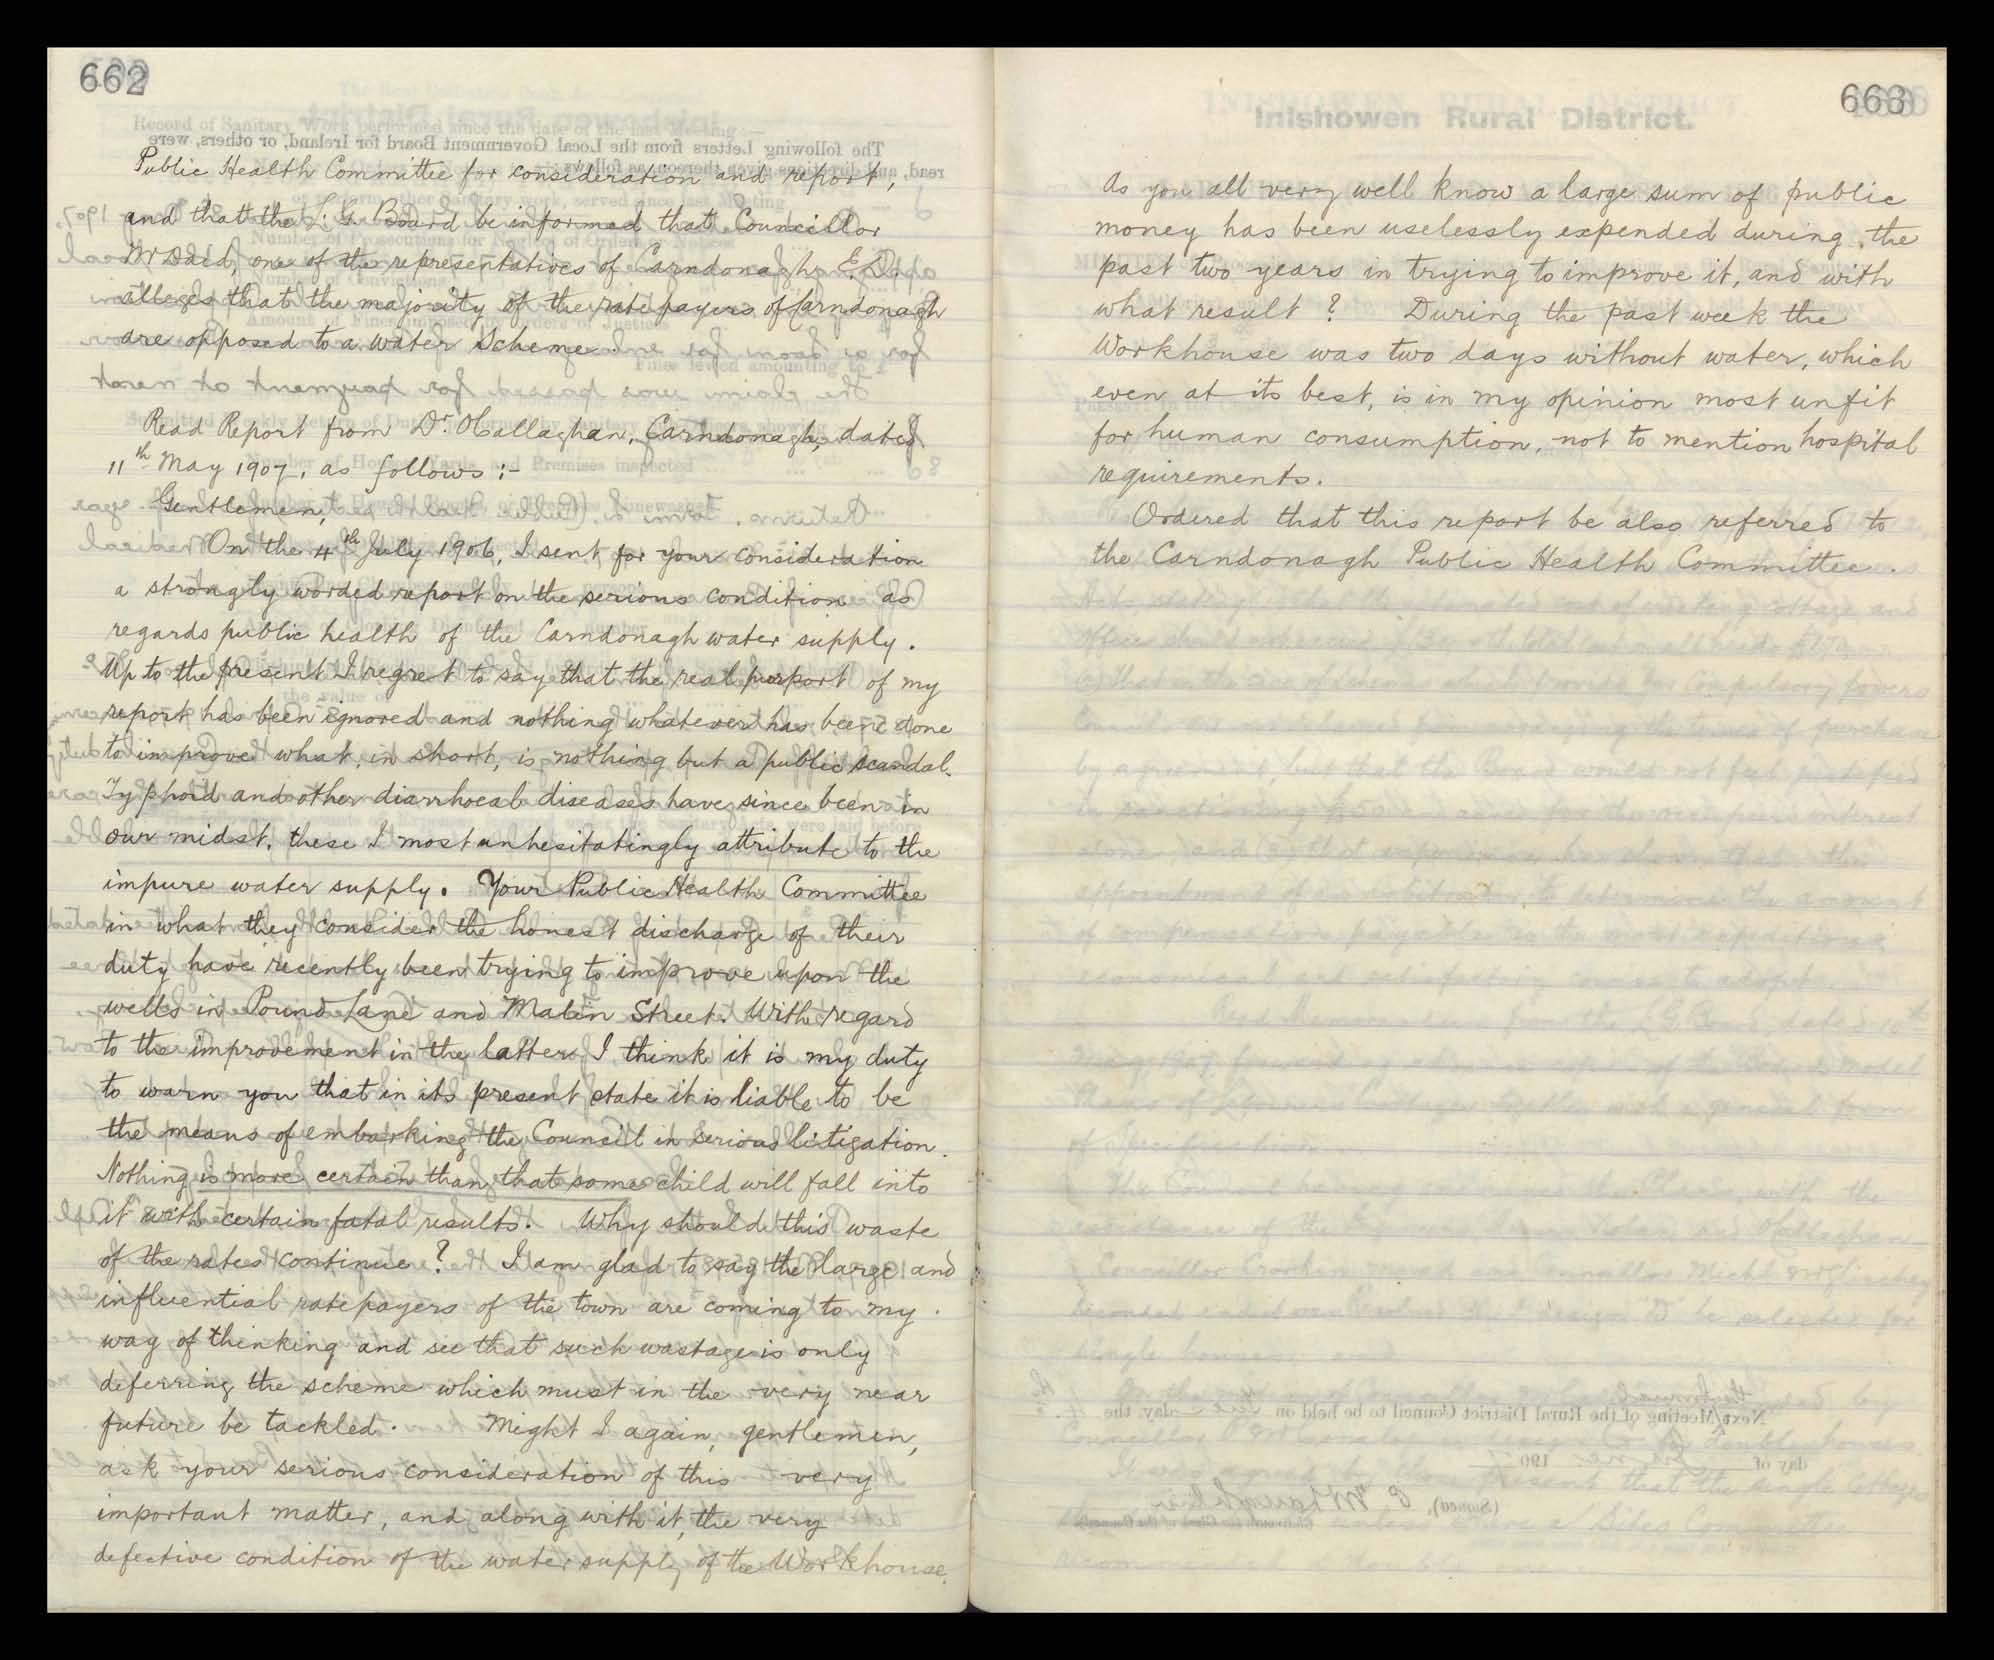 662
Public Health Committee for consideration and report,
and that the L. G. Board be informed that Councillor
McDaid, one of the representatives of Carndonagh E.D.
alleges that the majority of the ratepayers of Carndonagh
are opposed to a water scheme.
Read Report from Dr. O'Callaghan, Carndonagh, dated
11th May 1907, as follows :-
Gentlemen,
On the 4th July 1906, I sent for your consideration
a strongly worded report on the serious condition as
regards public health of the Carndonagh water supply.
Up to the present I regret to say that the real purport of my
report has been ignored and nothing whatever has been done
to improve what, in short, is nothing but a public scandal.
Typhoid and other diarrhoeal diseases have since been in
our midst, these I most unhesitatingly attribute to the
impure water supply. Your Public Health Committee
in what they consider the honest discharge of their
duty have recently been trying to improve upon the
wells in Pound Lane and Malin Street. With regard
to the improvement in the latter, I think it is my duty
to warn you that in its present state it is liable to be
the means of embarking the Council in serious litigation.
Nothing is more certain than that some child will fall into
it with certain fatal results. Why should this waste
of the rates continue ? I am glad to say the large and
influential ratepayers of the town are coming to my
way of thinking and see that such wastage is only
deferring the scheme which must in the very near
future be tackled. Might I again, gentlemen,
ask your serious consideration of this very
important matter, and along with it, the very
defective condition of the water supply of the Workhouse.
663
Inishowen Rural District.
As you all very well know a large sum of public
money has been uselessly expended during the
past two years in trying to improve it, and with
what result ? During the past week the
Workhouse was two days without water, which
even at its best, is in my opinion most unfit
for human consumption, not to mention hospital
requirements.
Ordered that this report be also referred to
the Carndonagh Public Health Committee.